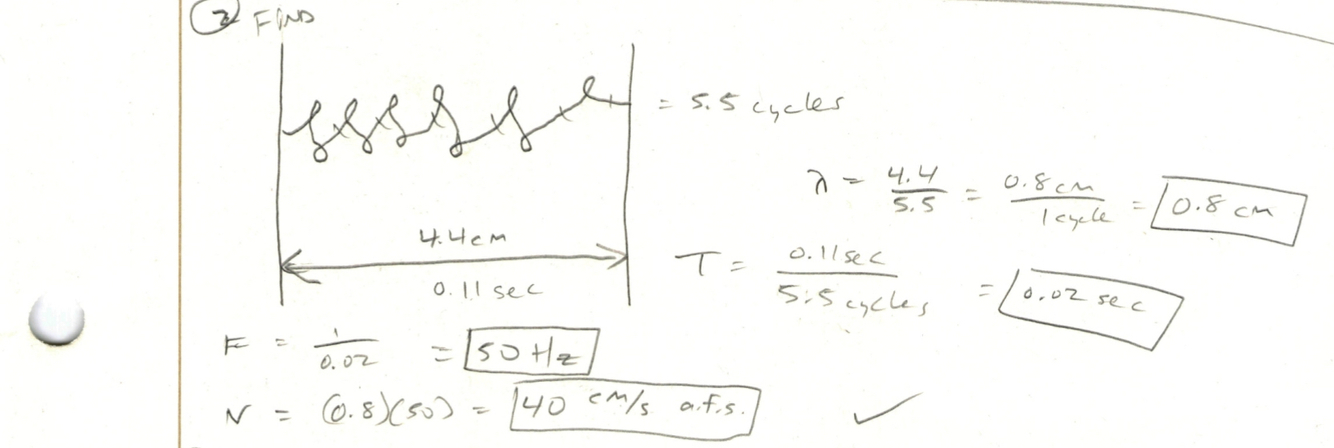 2 FIND
= 5.5 cycles
λ = 4.4/5.5 = 0.8 cm/1 cycle = 0.8 cm
4.4 cm
0.11 sec
T = 0.11 sec/5.5 cycles = 0.02 sec
F = 1/0.02 = 50 Hz
v = (0.8)(50) = 40 cm/s a.f.s. ✓